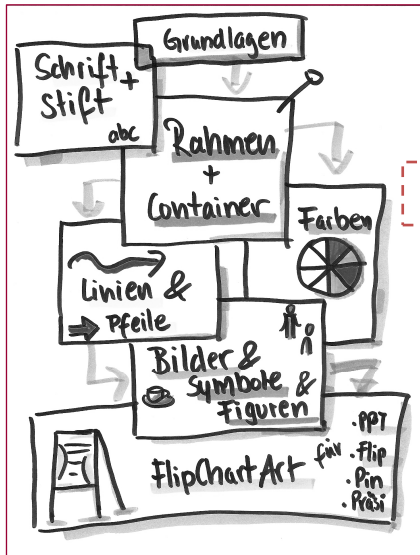 Grundlagen
Schrift +
Stift
abc
Rahmen
+
Container
Farben
Linien &
Pfeile
Bilder &
Symbole &
Figuren
FlipChartArt für
• PPT
• Flip
• Pin
• Präsi